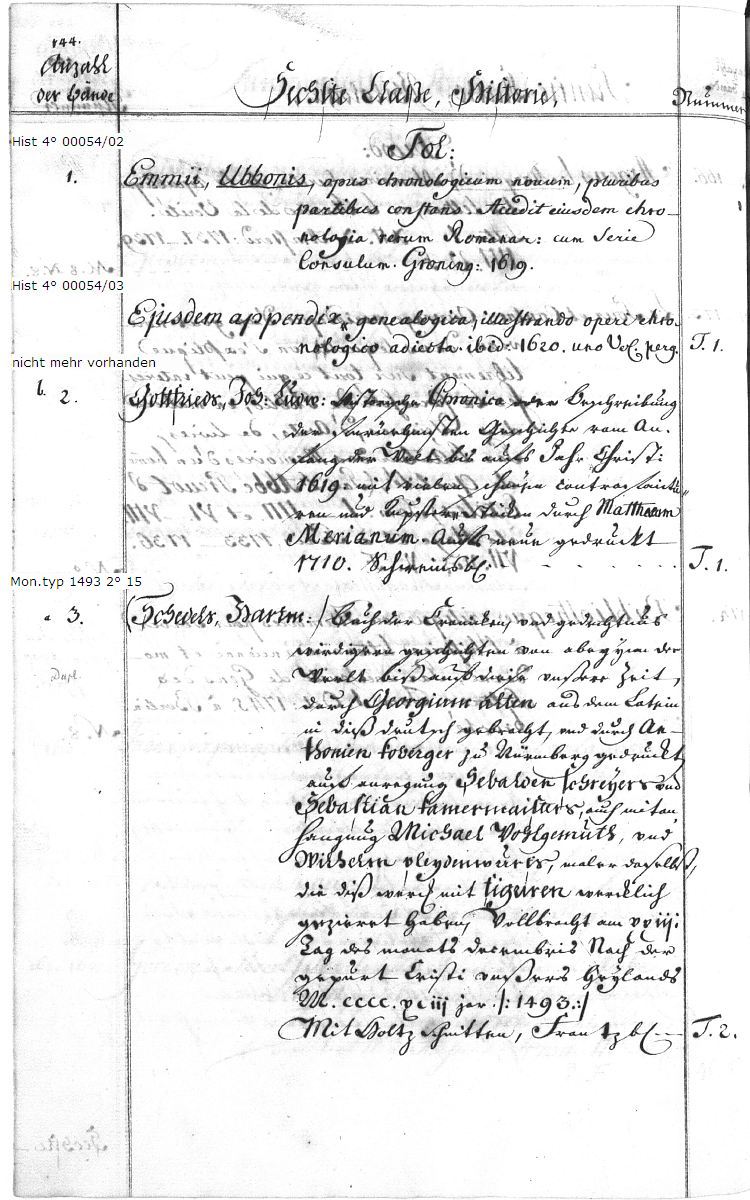 144.
Anzahl
der Bände
Sechste Claße, Historie,
Nummer
Hist 4° 00054/02
Fol:
1. Emmii, Ubbonis, opus chronologicum novum, pluribus
partibus constans. Accedit eiusdem chro-
nologia rerum Romanar: cum Serie
Consulum. Groening: 1619.
Hist 4° 00054/03
Ejusdem appendix genealogica, illustrando operi chro-
nologico adiecta. ibid: 1620. uno Vol. perg. T. 1.
nicht mehr vorhanden
b. 2. Gottfrieds, Joh: Ludw: historische Chronica oder Beschreibung
der fürnehmsten Geschichte vom An-
fang der Welt bis aufs Jahr Christi:
1619. mit vielen schönen contrafaictu-
ren und Kupferstücken durch Matthaeum
Merianum. Aufs neue gedruckt
1710. Schweinsbl: T. 1.
Mon.typ 1493 2° 15
a 3. (Schedels, Hartm:) Buch der Croniken, vnd gedechtnus
wirdigern geschichten von abegynn der
Werlt biß auf diese vnßere Zeit,
Dupl.
durch Georgium alten aus dem Latein
in diß deutsch gebracht, vnd durch An-
thonien koberger zu Nürmberg gedruckt,
auf anregung Sebalden schreyers vnd
Sebastian kamermaisters, auch mitan
hangnug Michael Wohlgemuth, vnd
Wilhelm pleydenwurfs, maler daselbst,
die diß werck mit figuren wercklich
gezieret haben, Vollbracht am xxiij.
Tag des monats decembris Nach der
gepurt Cristi vnßers Heylands
M. cccc. xciij jar /: 1493:/
Mit Holtz schnitten, Frantzb. T. 2.